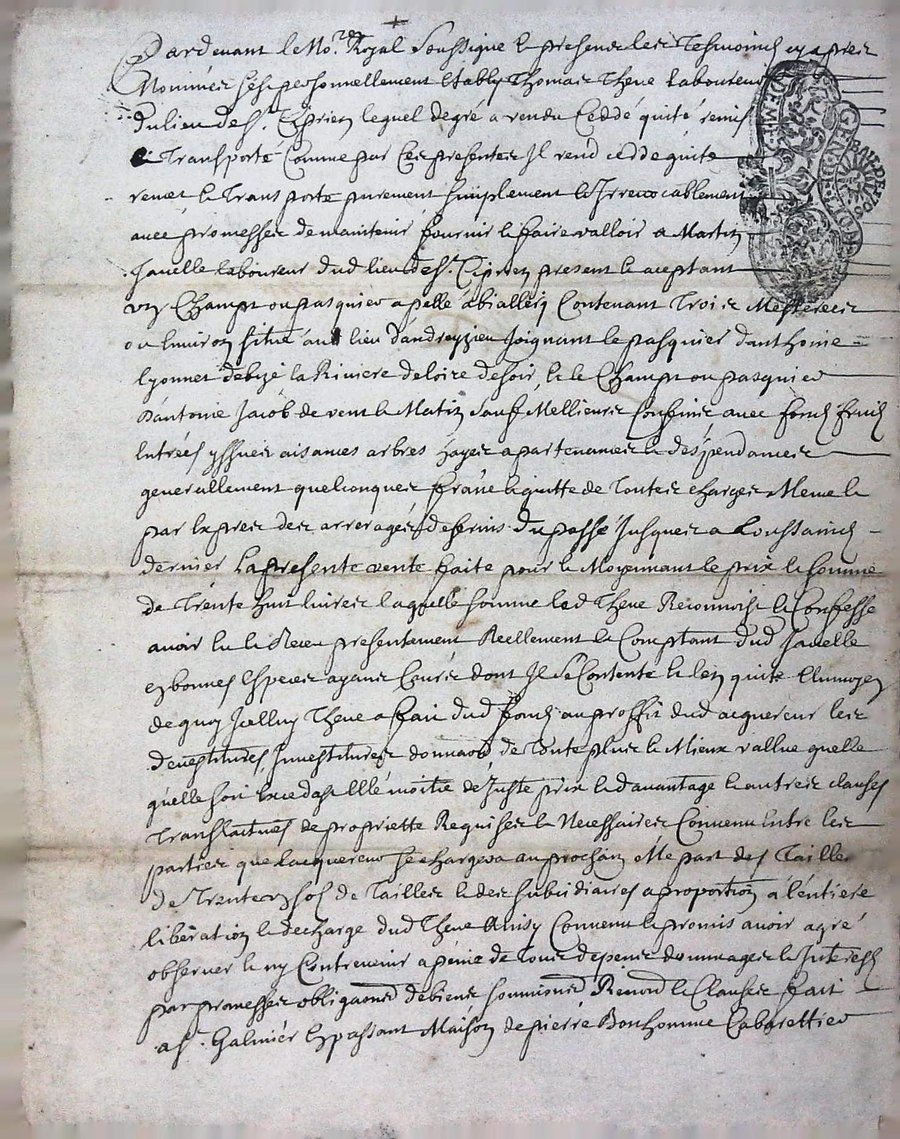 Pardevant le No.re Royal Soussigne & presence les Tesmoins cy apres
Nommés s'est personnellement Etably Thomas Theve Laboureur
du lieu de S.t Ciprien lequel degré a vendu Ceddé quité remis
& Transporté Comme par Ces presentes Il vend cedde quite
remet & Transporte purement simplement & Irrevocablement
avec promesses de maintenir fournir & faire valloir a Martin
Javelle laboureur dud lieu de S.t Ciprien present & aceptant
un Champt ou pasquier apellé Contenant Trois Mesterées
ou Environ situé aud lieu d'andreyzieu Joignant le pasquier d'anthoine
Lyonnet de bize la Riviere de loire de soir, & le Champt ou pasquier
D'antoine Jacob de vent & Matin Sauf Mellieurs Confins avec fonds fruits
Entrées yssues aisances arbres hayes apartenances & despendances
generallement quelconques franc & quitte de Toutes charges Meme &
par Expres des arrerages de servis du passé Jusques a Toussaincts
dernier La presente vente faite pour & Moyennant le prix & somme
de Trente huit livres laquelle somme led Theve Reconnoist & Confesse
avoir Eu & Receu presentement Reellement & Comptant dud Javelle
en bonnes Especes ayant Cours dont Il se Contente & l'en quite
de quoy Icelluy Theve a fait dud fonds au proffit dud acquereur les
devestitures, Investitures de Toute plus & Mieux vallue quelle
quelle soit Exceda't Elle moitié de Juste prix & davantage & autres clauses
Translatives de propriette Requises & Necessaires Convenu Entre les
parties que Lacquereur se chargera au prochain
de Trente un sols de Tailles & des subsidiaires a proportion a l'entiere
libération & decharge dud Theve Ainsy Convenu & promis avoir agré
observer & ny Contrevenir a peine de Tous depens dommages & Interests
par promesses obliga'ons de biens soumissions Renon'd & Clauses fait
a S.t Galmier En passant Maison de pierre Bonhomme Cabarettier
GEN